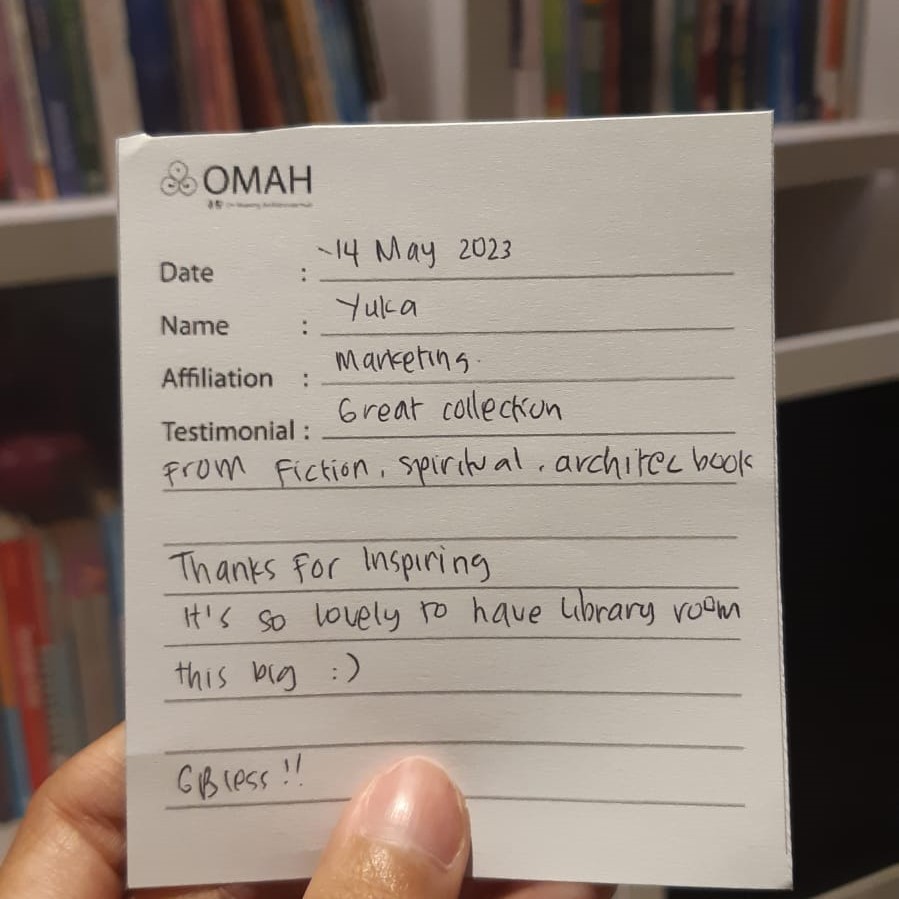 OMAH
Date : 14 May 2023
Name : Yuka
Affiliation : Marketing.
Testimonial : Great collection
From Fiction, spiritual, architec book
Thanks For Inspiring
It's so lovely to have library room
this big :)
GBless !!